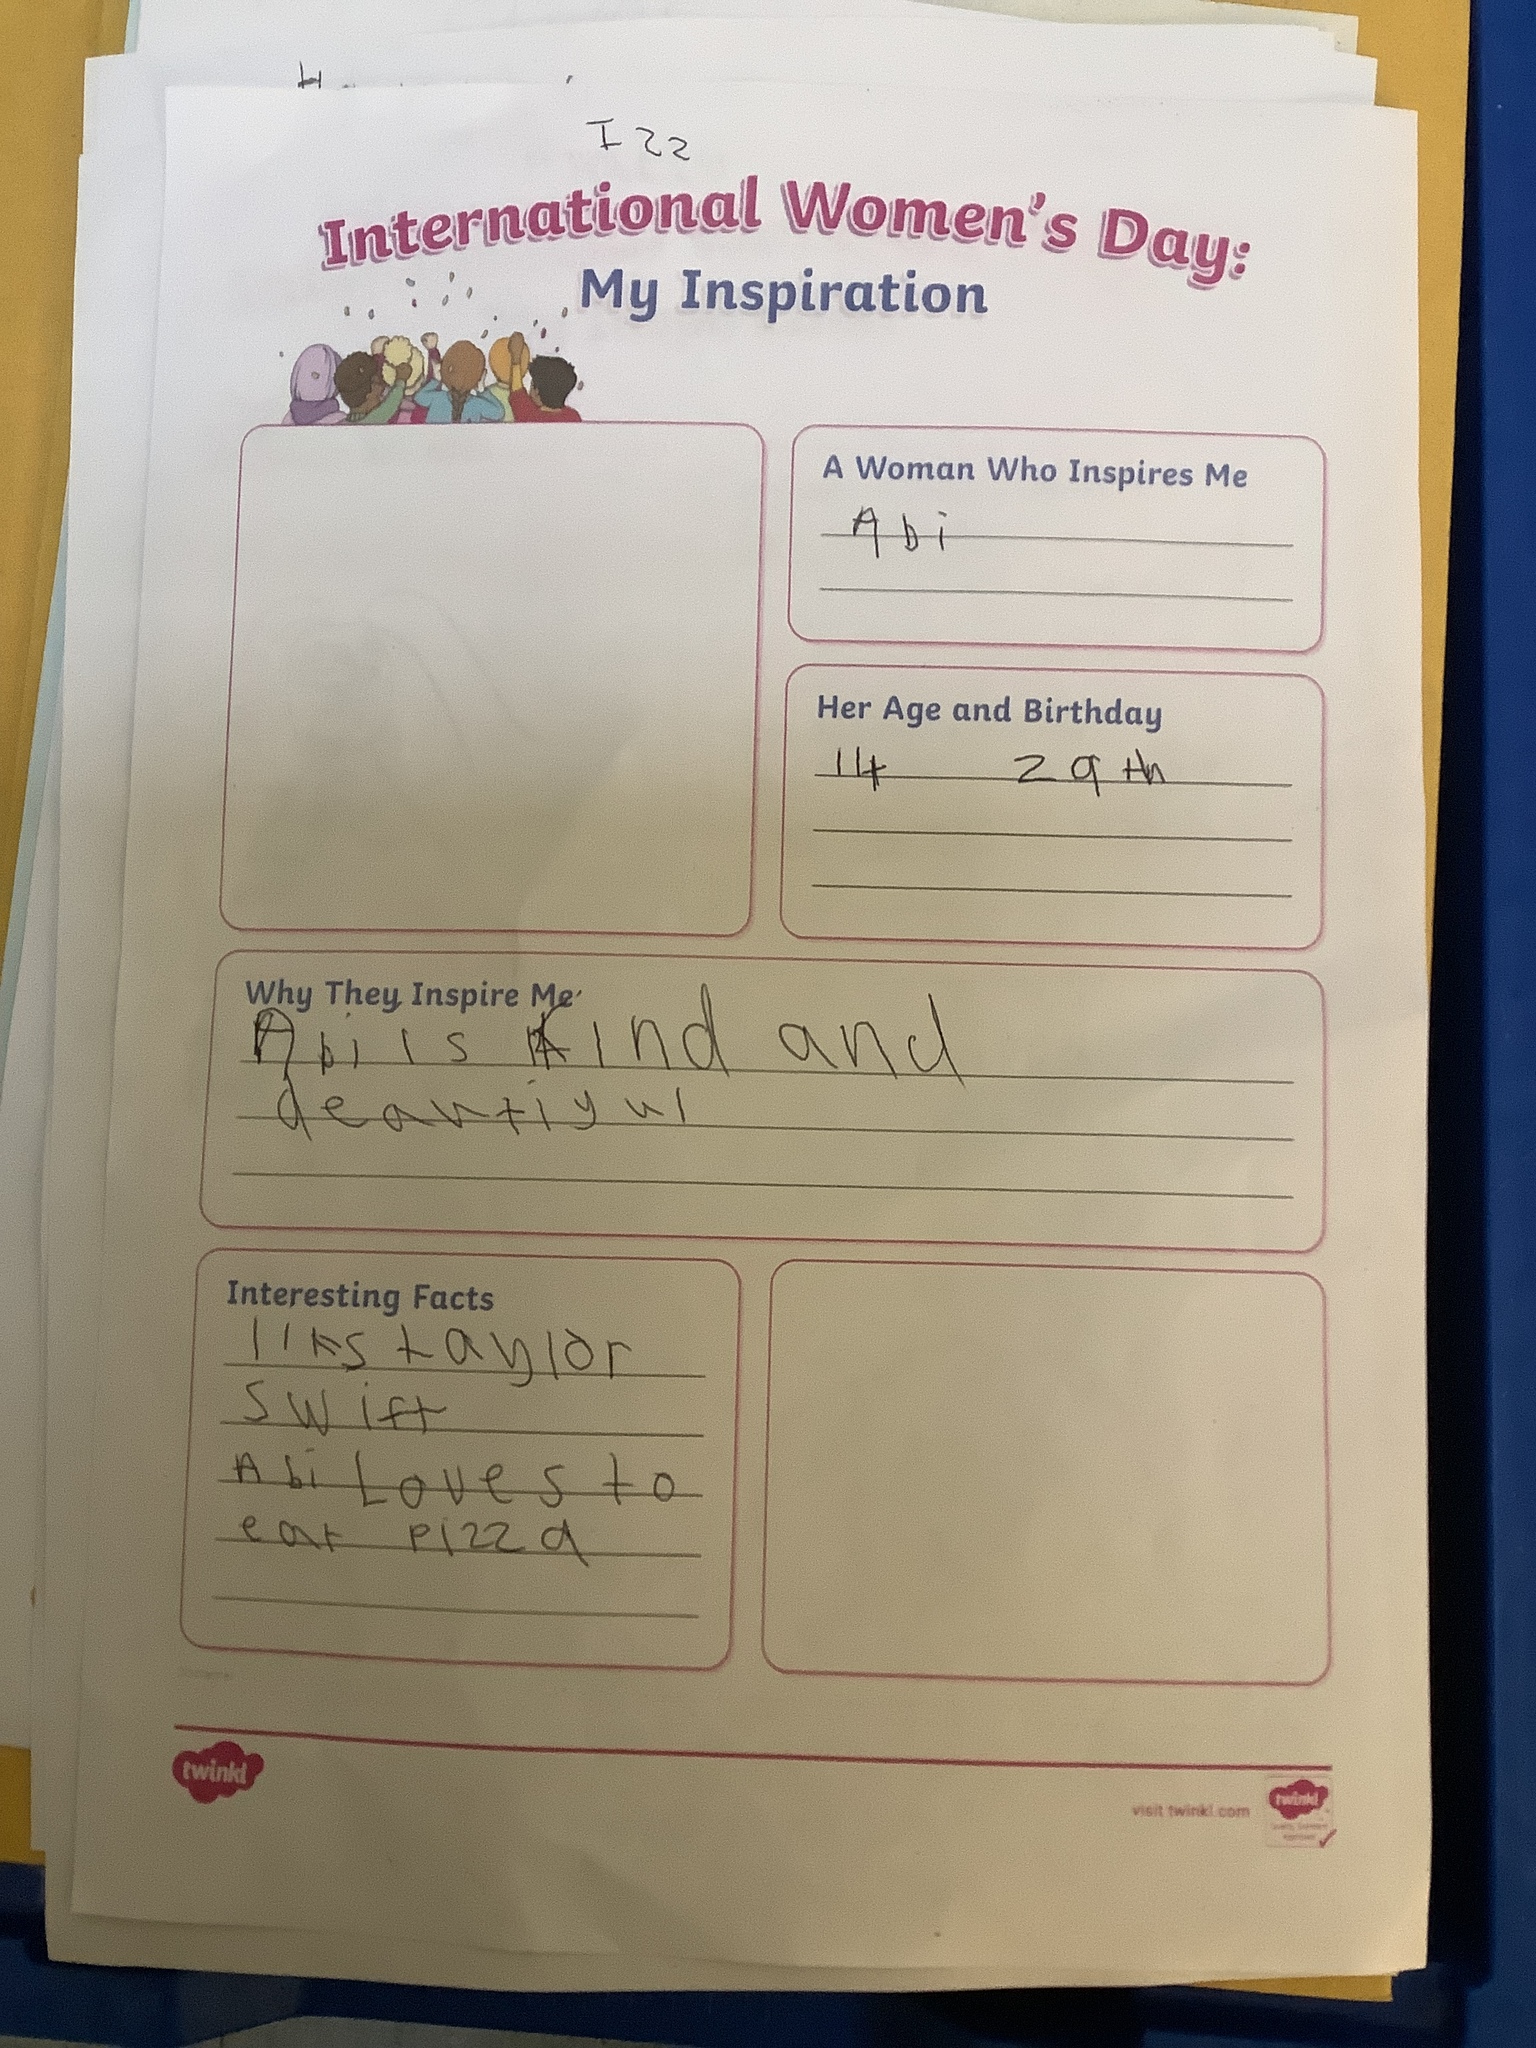 Izz
International Women's Day:
My Inspiration
A Woman Who Inspires Me
Abi
Her Age and Birthday
14 29th
Why They Inspire Me
Abi is kind and
deautiyul
Interesting Facts
liks taylor
swift
Abi Loves to
eat pizza
twinkl
visit twinkl.com
twinkl